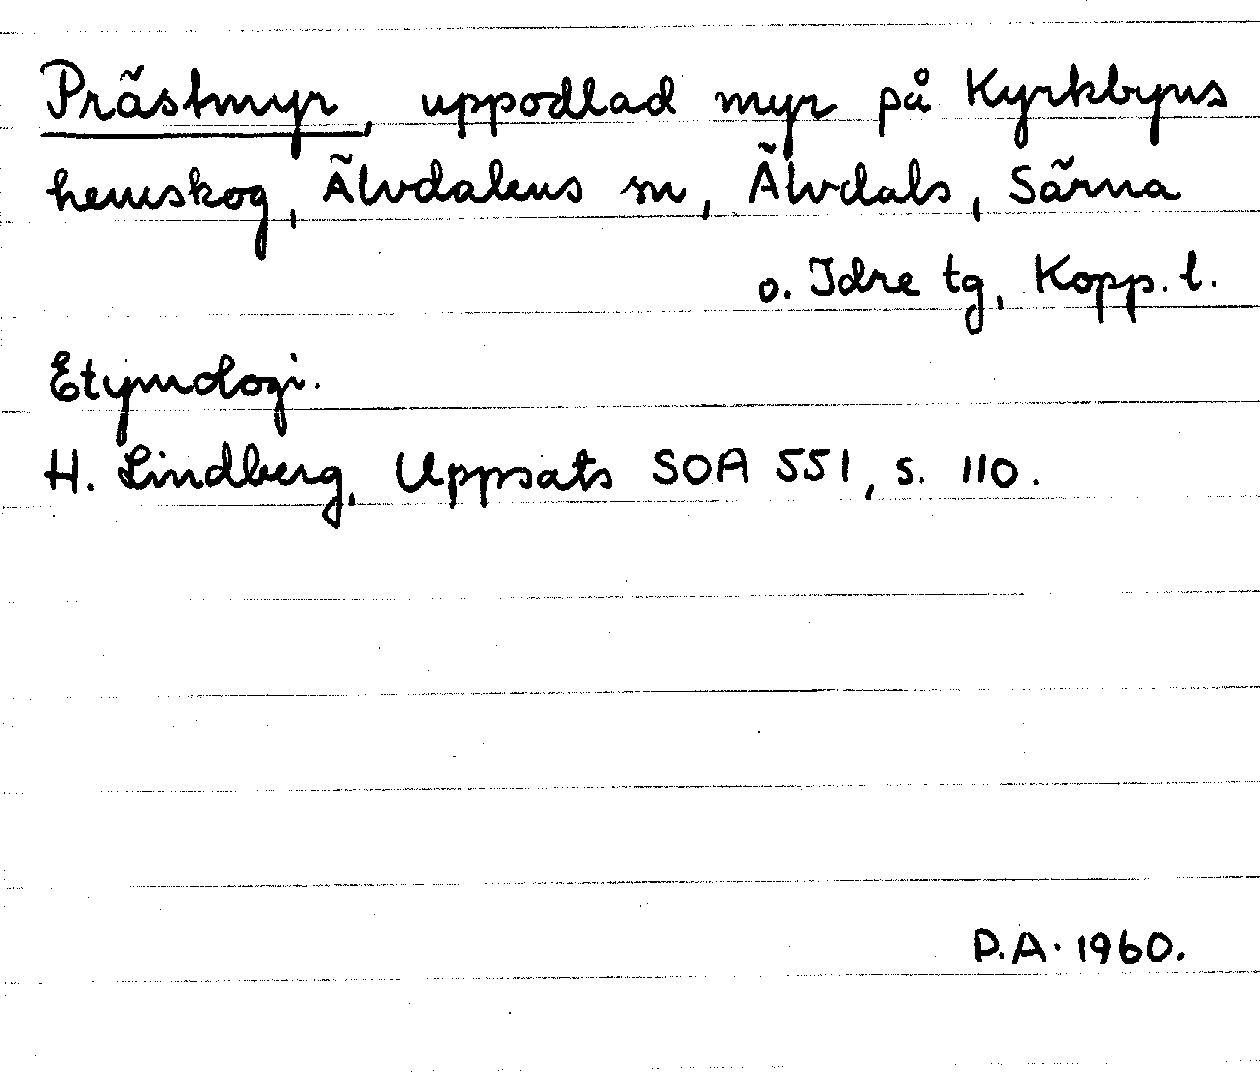 Prästmyr, uppodlad myr på Kyrkbyns
hemskog, Älvdalens sn, Älvdals, Särna
o. Idre tg, Kopp. l.
Etymologi.
H. Lindberg, Uppsats SOA 551, s. 110.
P.A. 1960.